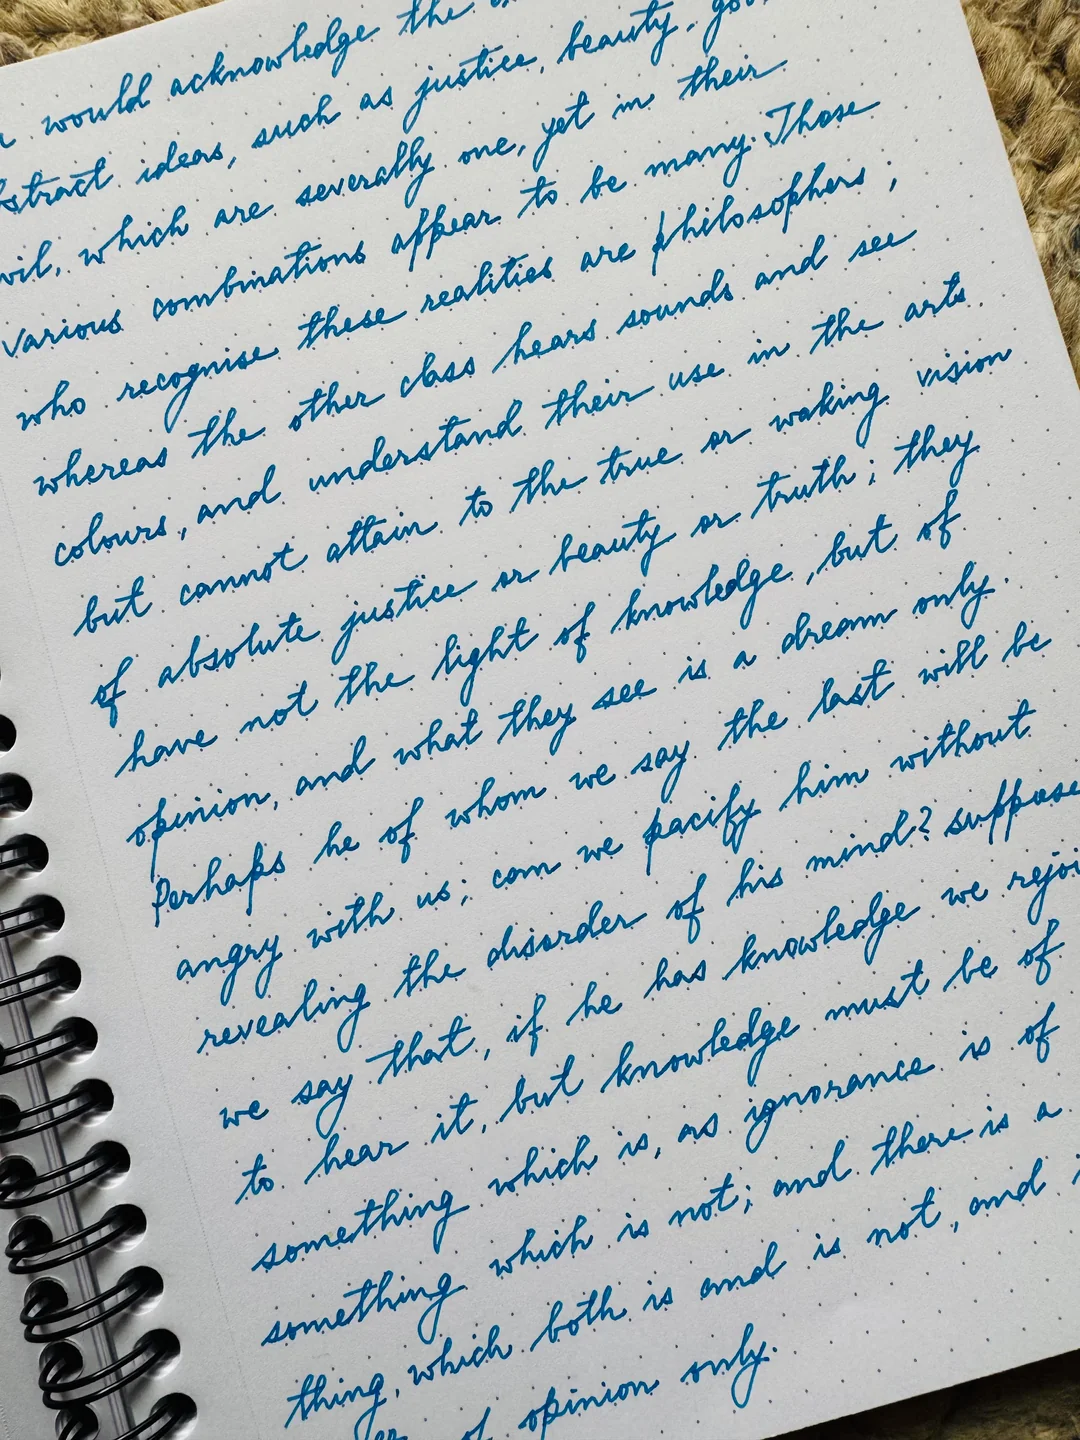 would acknowledge the
ideas, such as justice, beauty,
which are severally one, yet in their
various combinations appear to be many. Those
who recognise these realities are philosophers;
whereas the other class hears sounds and see
colours, and understand their use in the arts.
but cannot attain to the true or waking vision
of absolute justice or beauty or truth; they
have not the light of knowledge, but of
opinion, and what they see is a dream only.
Perhaps he of whom we say the last will be
angry with us; can we pacify him without
revealing the disorder of his mind? suppose
we say that, if he has knowledge we
to hear it, but knowledge must be of
something which is, as ignorance is of
something which is not; and there is a
thing, which both is and is not, and
of opinion only.